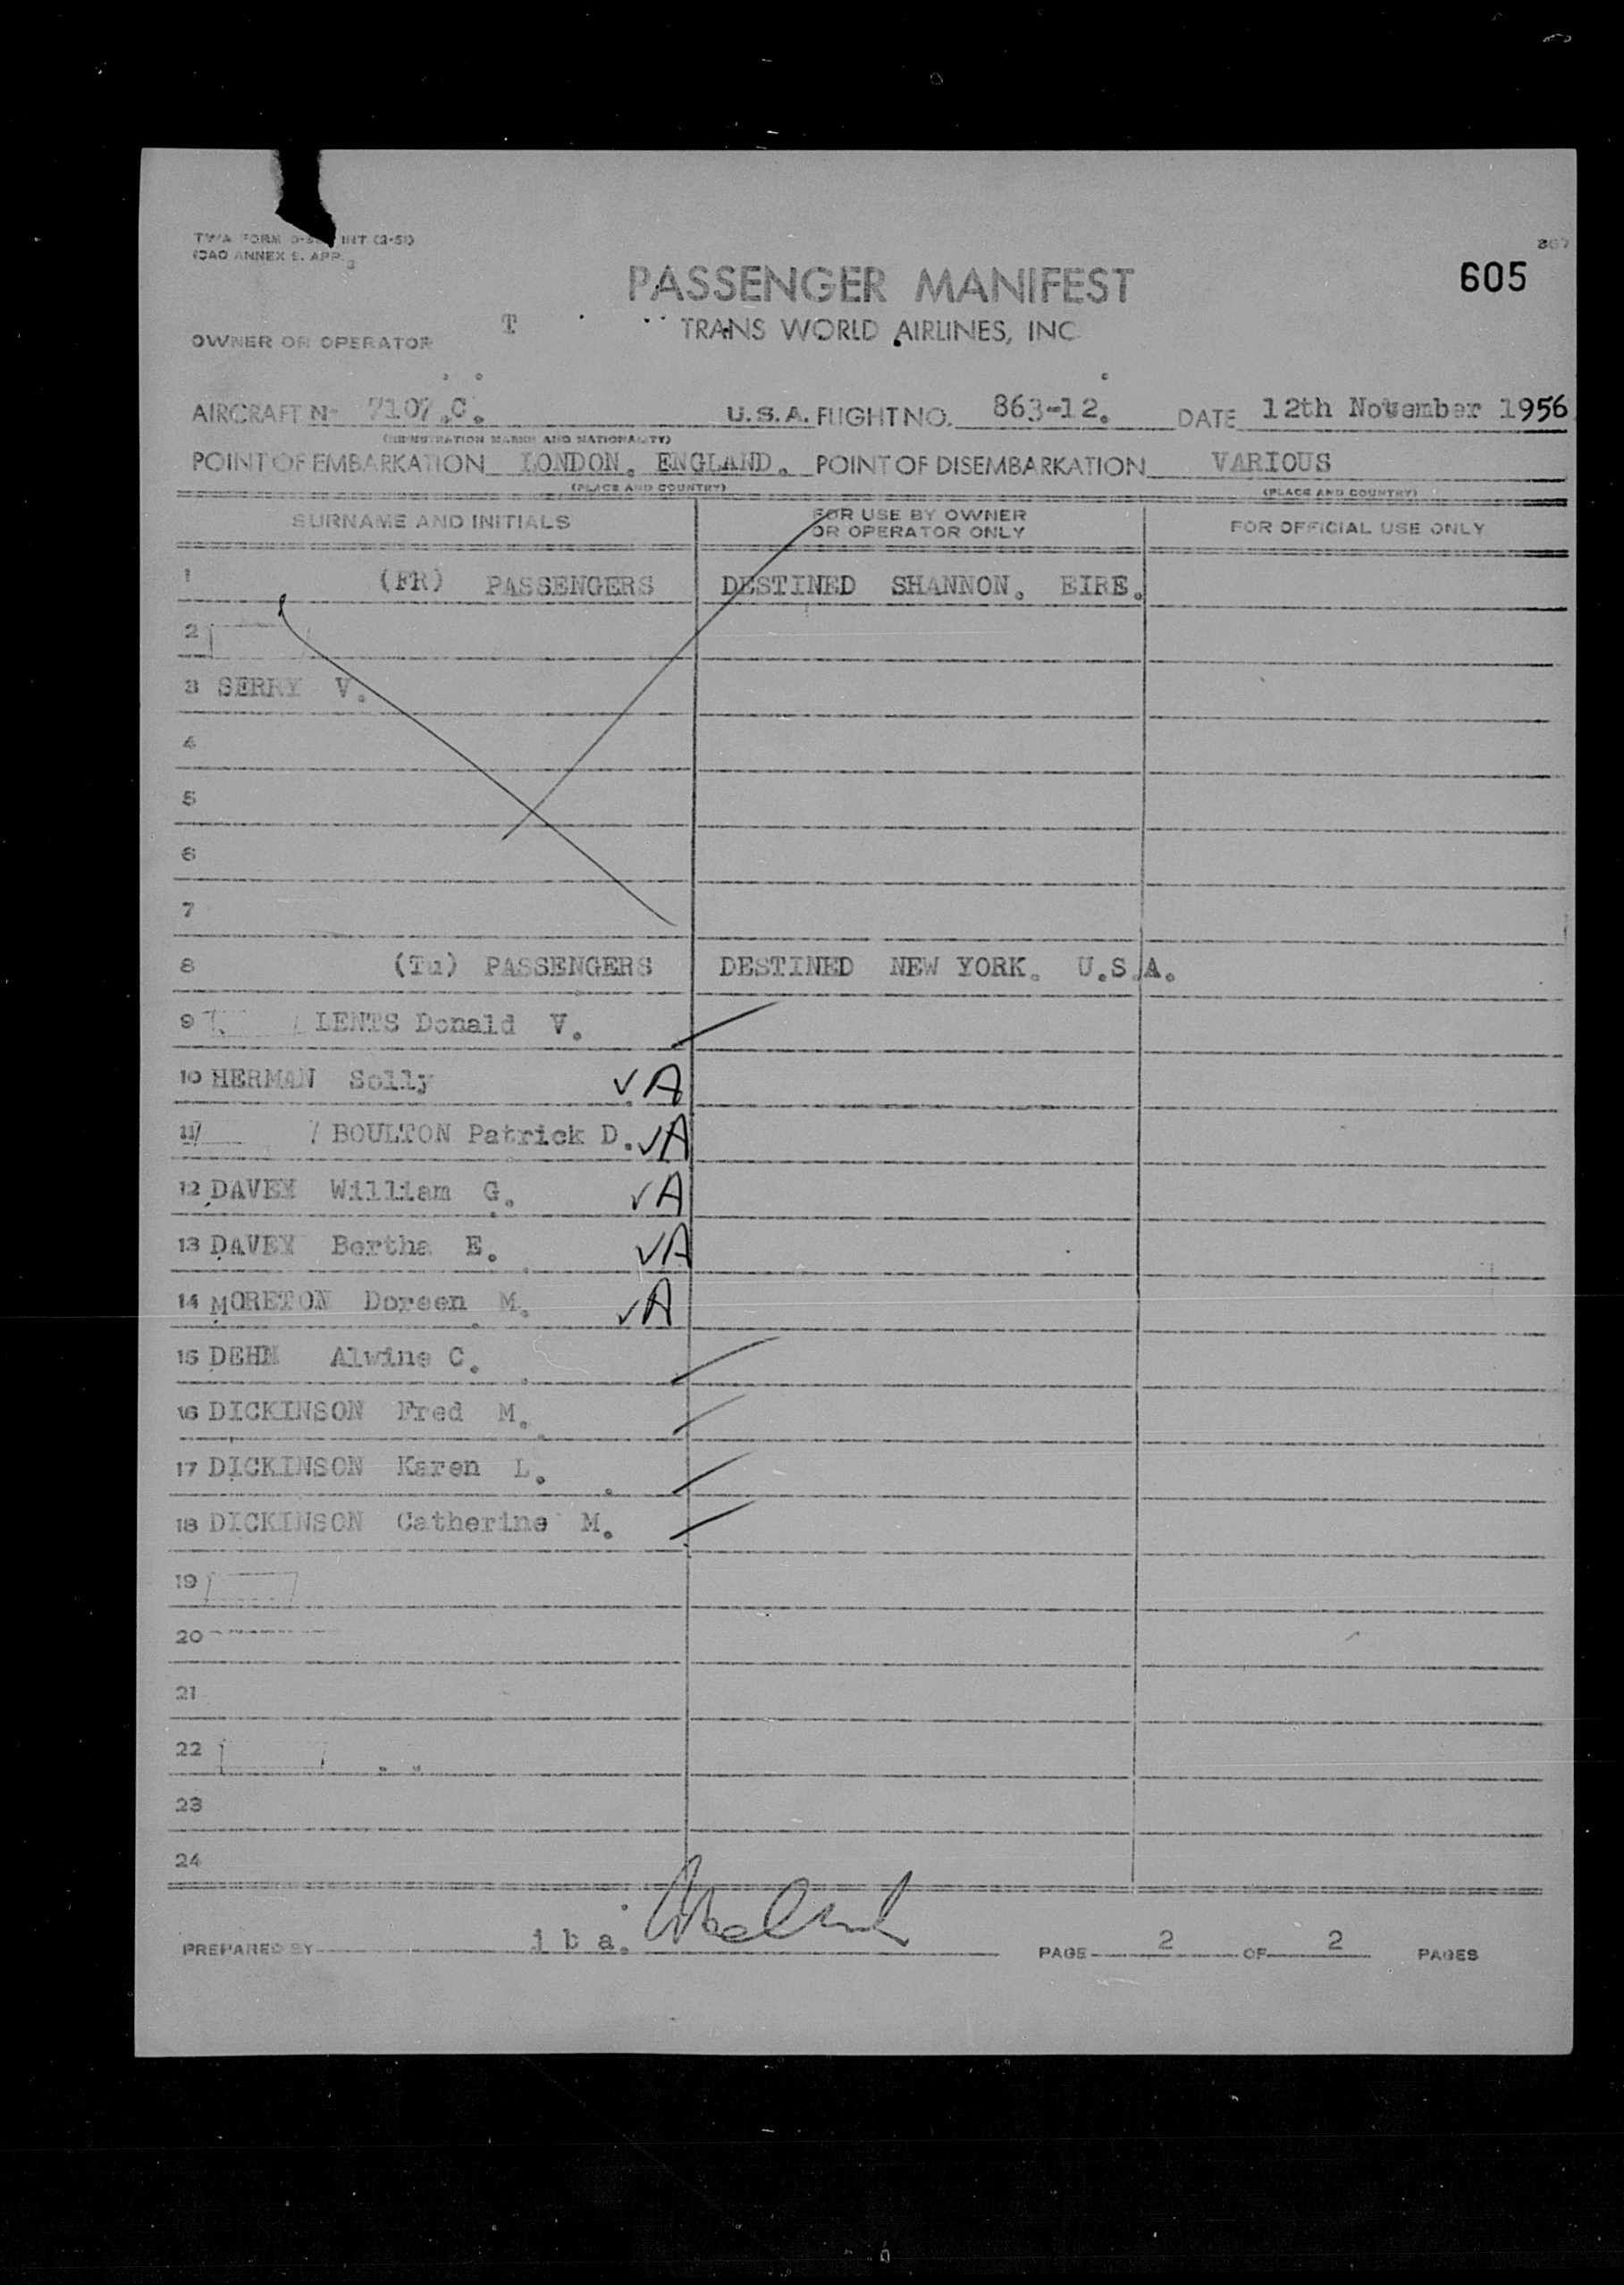 TWA FORM INT (2-51)
ICAO ANNEX 9. APP. 3
867
605
PASSENGER MANIFEST
T
TRANS WORLD AIRLINES, INC
OWNER OR OPERATOR
AIRCRAFT No 7107.C. U.S.A. FLIGHT NO. 863-12. DATE 12th November 1956
(REGISTRATION MARKS AND NATIONALITY)
POINT OF EMBARKATION LONDON. ENGLAND. POINT OF DISEMBARKATION VARIOUS
(PLACE AND COUNTRY) (PLACE AND COUNTRY)
SURNAME AND INITIALS FOR USE BY OWNER OR OPERATOR ONLY FOR OFFICIAL USE ONLY
1 (FR) PASSENGERS DESTINED SHANNON. EIRE.
2
3 SERRY V.
4
5
6
7
8 (Tu) PASSENGERS DESTINED NEW YORK. U.S.A.
9 LENTS Donald V.
10 HERMAN Solly ✓A
11 BOULTON Patrick D. ✓A
12 DAVEY William G. ✓A
13 DAVEY Bertha E. ✓A
14 MORETON Doreen M. ✓A
15 DEHN Alwine C.
16 DICKINSON Fred M.
17 DICKINSON Karen L.
18 DICKINSON Catherine M.
19
20
21
22
23
24
PREPARED BY j b a. PAGE 2 OF 2 PAGES